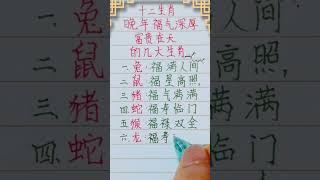 十二生肖
晚年福气深厚
富贵在天
的九大生肖
一.兔:福满人间
二.鼠:福星高照,
三.猪:福气满满
四.蛇:福寿临门
五.猴:福禄双全
六.龙:福寿